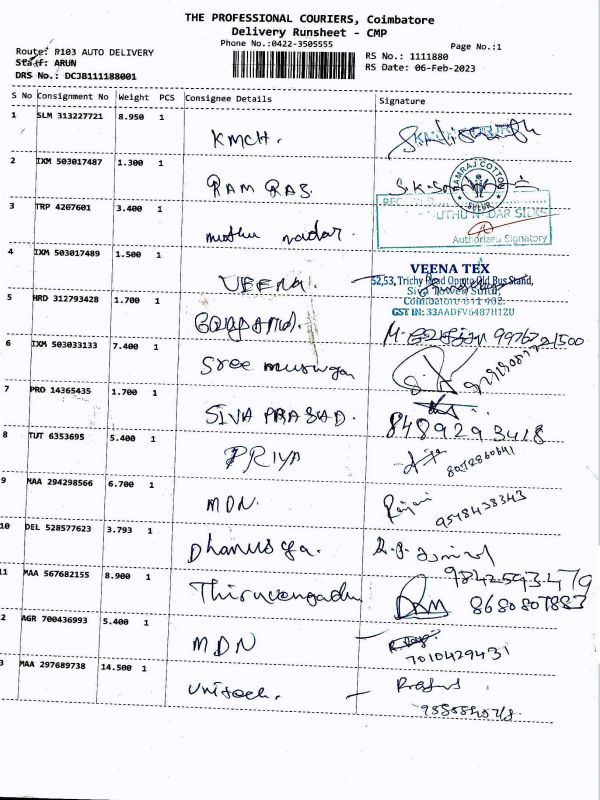 THE PROFESSIONAL COURIERS, Coimbatore
Delivery Runsheet - CMP
Phone No.:0422-3505555
Page No.:1
Route: R103 AUTO DELIVERY
RS No.: 1111880
Staff: ARUN
RS Date: 06-Feb-2023
DRS No.: DCJB111188001
S No Consignment No Weight PCS Consignee Details Signature
1 SLM 313227721 8.950 1 KMCH.
2 IXM 503017487 1.300 1 RAM RAJ.
RAMRAJ COTTON
SULUR
3 TRP 4207601 3.400 1 muthu nadar.
MUTHU NADAR SILKS
Authorized Signatory
4 IXM 503017489 1.500 1 VEENA.
VEENA TEX
52,53, Trichy Road Opp to Old Bus Stand,
Siva Tower Sulur,
Coimbatore 641 402.
GST IN: 33AADFV6487H1ZU
5 HRD 312793428 1.700 1 99767 21500
6 IXM 503033133 7.400 1 Sree muruga
7 PRO 14365435 1.700 1 SIVA PRASAD. 8489293418
8 TUT 6353695 5.400 1 PRIYA 8072860641
9 MAA 294298566 6.700 1 MDN. Rajai 9578438343
10 DEL 528577623 3.793 1 Dhanusya.
9842593479
11 MAA 567682155 8.900 1 Thiruvengadu 8680807883
2 AGR 700436993 5.400 1 MDN
7010429431
3 MAA 297689738 14.500 1 Unitech.